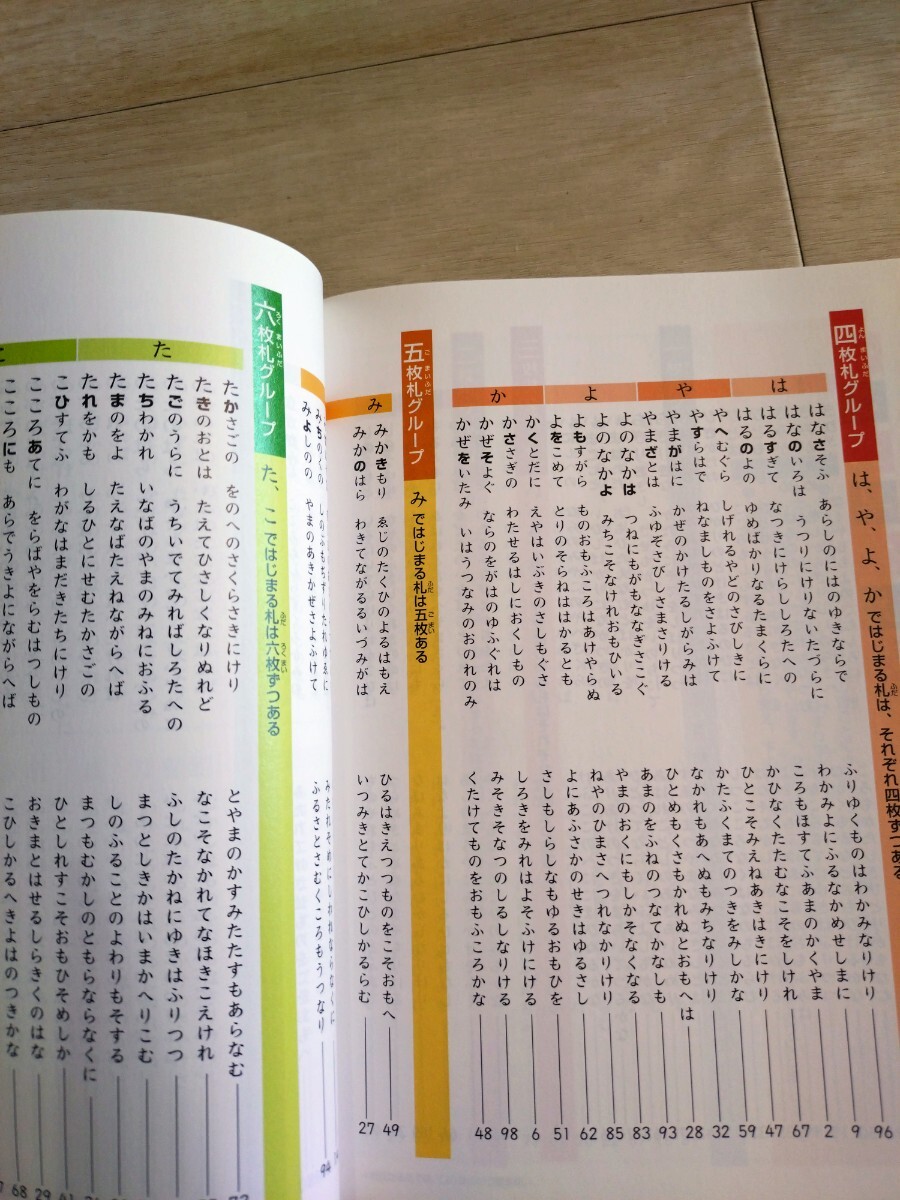 四枚札グループ は、や、よ、か ではじまる札は、それぞれ四枚ずつある
よん まいふだ
ふだ
は
はなさそふ あらしのにはのゆきならで ふりゆくものはわかみなりけり 96
はなのいろは うつりにけりないたづらに わかみよにふるなかめせしまに 9
はるすぎて なつきにけらししろたへの ころもほすてふあまのかくやま 2
はるのよの ゆめばかりなるたまくらに かひなくたたむなこそをしけれ 67
や
やへむぐら しげれるやどのさびしきに ひとこそみえねあきはきにけり 47
やすらはで ねなましものをさよふけて かたふくまてのつきをみしかな 59
やまがはに かぜのかけたるしがらみは なかれもあへぬもみちなりけり 32
やまざとは ふゆぞさびしさまさりける ひとめもくさもかれぬとおもへは 28
よ
よのなかは つねにもがもななぎさこぐ あまのをふねのつなてかなしも 93
よのなかよ みちこそなけれおもひいる やまのおくにもしかそなくなる 83
よもすがら ものおもふころはあけやらぬ ねやのひまさへつれなかりけり 85
よをこめて とりのそらねははかるとも よにあふさかのせきはゆるさし 62
か
かくとだに えやはいぶきのさしもぐさ さしもしらしなもゆるおもひを 51
かささぎの わたせるはしにおくしもの しろきをみれはよそふけにける 6
かぜそよぐ ならのをがはのゆふぐれは みそきそなつのしるしなりける 98
かぜをいたみ いはうつなみのおのれのみ くたけてものをおもふころかな 48
五枚札グループ み ではじまる札は五枚ある
ご まいふだ
ふだ ごまい
み
みかきもり ゑじのたくひのよるはもえ ひるはきえつつものをこそおもへ 49
みかのはら わきてながるるいづみがは いつみきとてかこひしかるらむ 27
みちのくの しのぶもちずりたれゆゑに みたれそめにしわれならなくに
みよしのの やまのあきかぜさよふけて ふるさとさむくころもうつなり 94
六枚札グループ た、こ ではじまる札は六枚ずつある
ろく まいふだ
ふだ ろくまい
た
たかさごの をのへのさくらさきにけり とやまのかすみたたすもあらなむ
たきのおとは たえてひさしくなりぬれど なこそなかれてなほきこえけれ
たごのうらに うちいでてみればしろたへの ふしのたかねにゆきはふりつつ
たちわかれ いなばのやまのみねにおふる まつとしきかはいまかへりこむ
たまのをよ たえなばたえねながらへば しのふることのよわりもそする
たれをかも しるひとにせむたかさごの まつもむかしのともならなくに
こひすてふ わがなはまだきたちにけり ひとしれすこそおもひそめしか
こころあてに をらばやをらむはつしもの おきまとはせるしらきくのはな 29
こころにも あらでうきよにながらへば こひしかるへきよはのつきかな 68